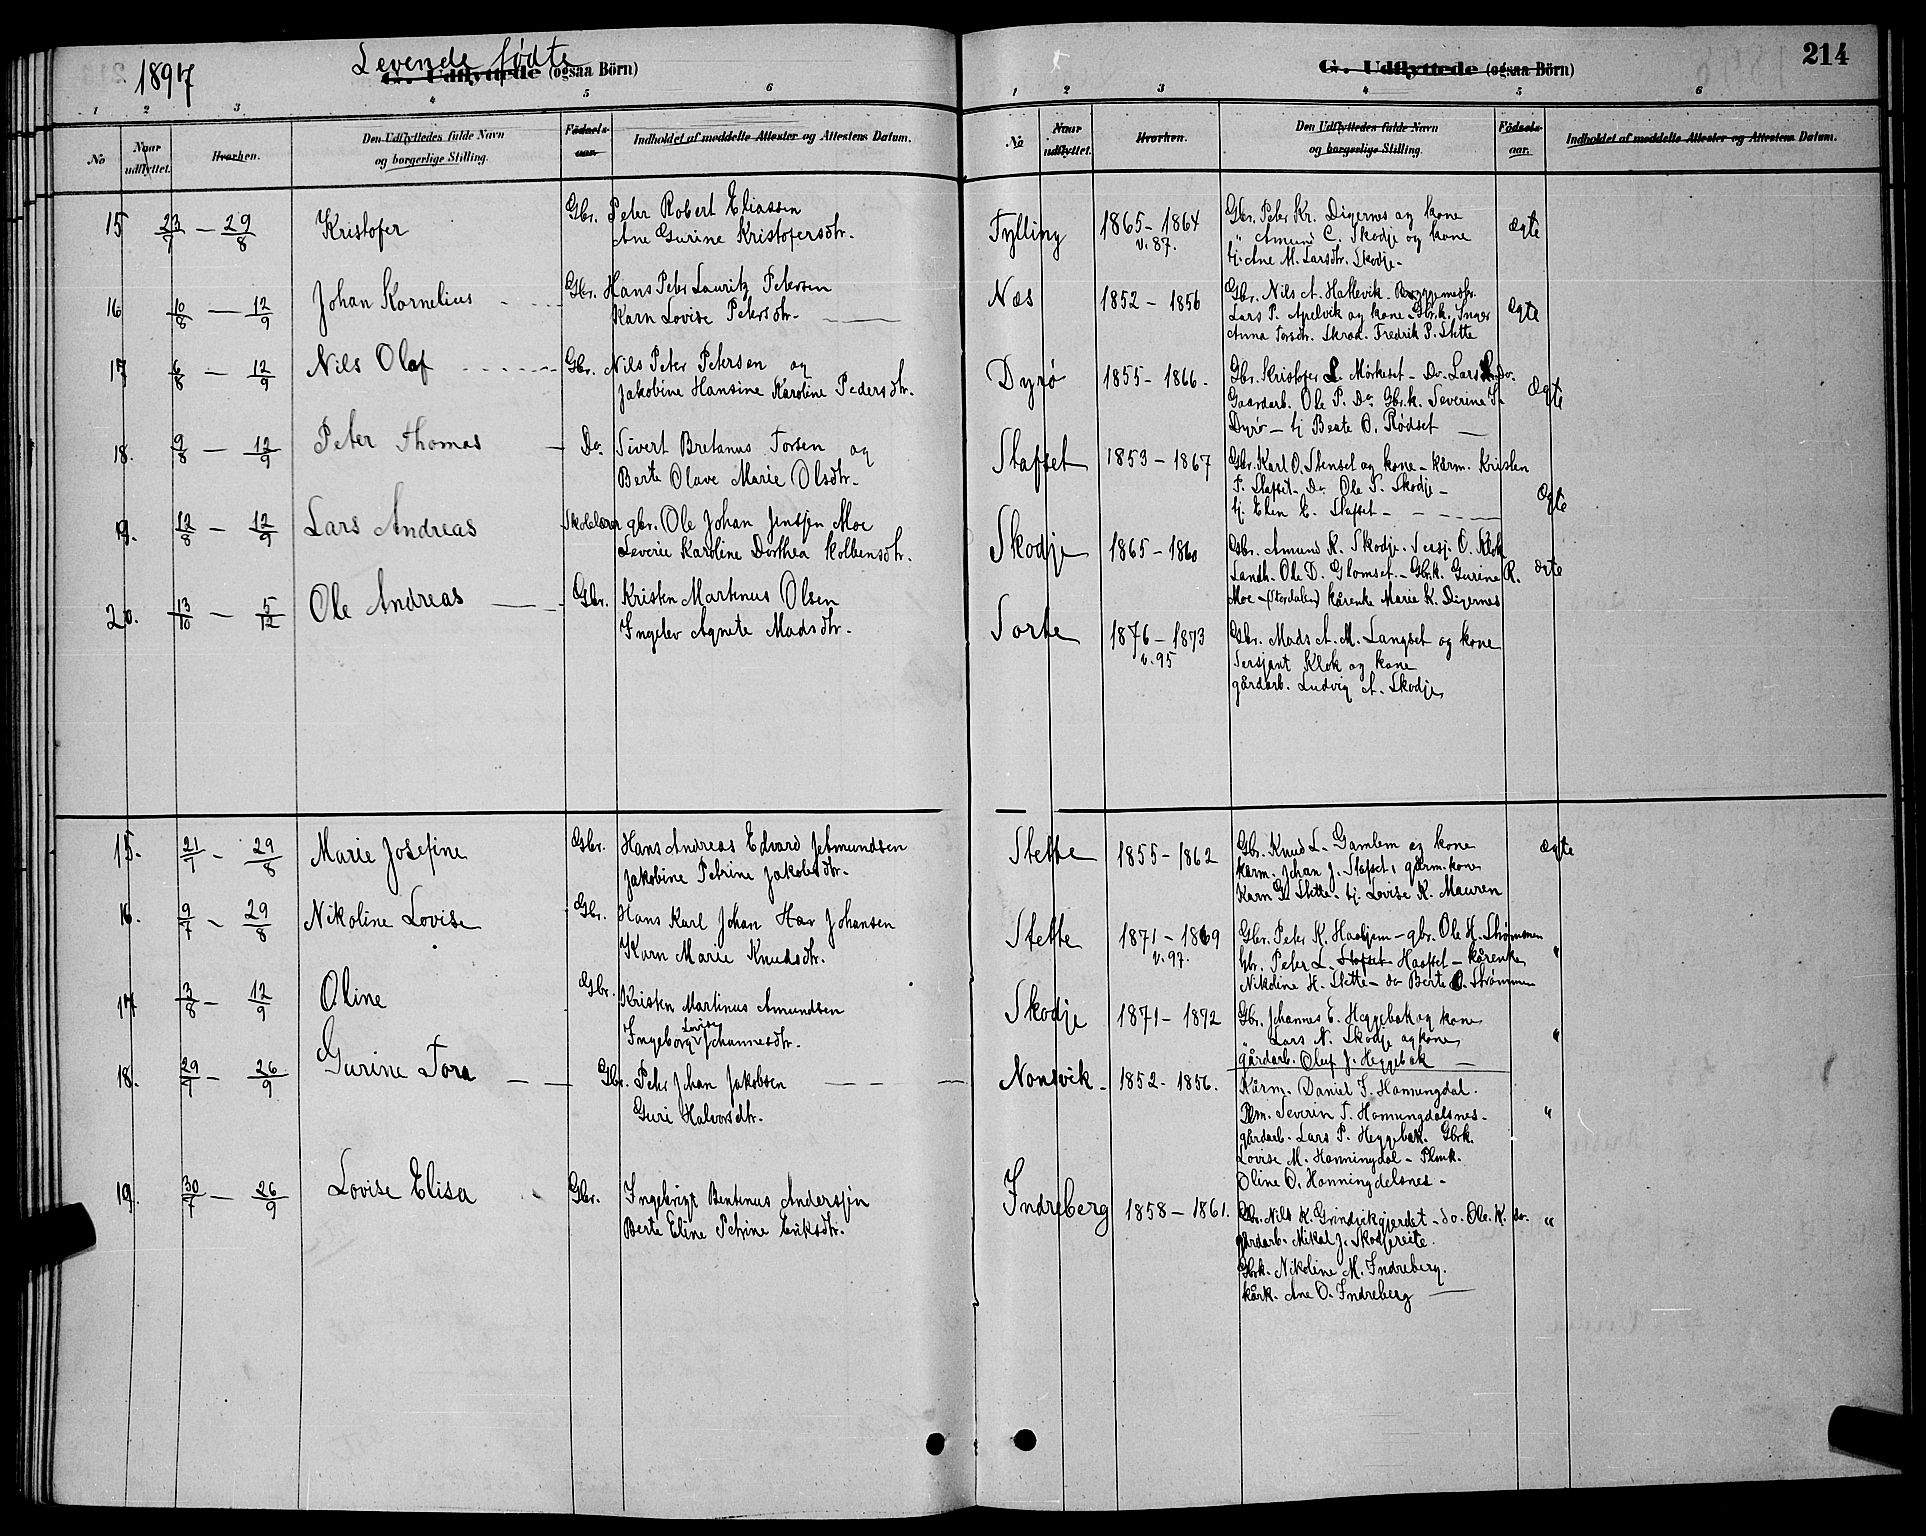 1897
Levende fødte
G. Udflyttede (ogsaa Börn)
1 2 3 4 5 6
No
Naar udflyttet.
Hvorhen.
Den Udflyttedes fulde Navn
og borgerlige Stilling.
Födsels-
aar.
Indholdet af meddelte Attester og Attestens Datum.
15 23/7 — 29/8 Kristofer Gbr. Peter Robert Eliassen
Ane Gurine Kristofersdtr.
16 6/8 — 12/9 Johan Kornelius Gbr. Hans Peter Lauritz Petersen
Karn Lovise Petersdtr.
17 6/8 — 12/9 Nils Olaf Gbr. Nils Peter Petersen og
Jakobine Hansine Karoline Pedersdtr.
18. 9/8 — 12/9 Peter Thomas Do. Sivert Bretanus Torsen og
Berte Olave Marie Olsdtr.
19. 12/8 — 12/9 Lars Andreas Skolelærer gbr. Ole Johan Jensen Moe
Severie Karoline Dorthea Kolbensdtr.
20. 13/10 — 5/12 Ole Andreas Gbr. Kristen Martinus Olsen
Ingelev Agnete Madsdtr.
15. 21/7 - 29/8 Marie Josefine Gbr. Hans Andreas Edvard Jetmundsen
Jakobine Petrine Jakobsdtr.
16. 9/7 - 29/8 Nikoline Lovise Gbr. Hans Karl Johan Johansen
Karn Marie Knudsdtr.
17 3/8 - 12/9 Oline Gbr. Kristen Martinus Amundsen
Ingeborg Lovise Johannesdtr.
18. 29/7 - 26/9 Gurine Tora Gbr. Peter Johan Jakobsen
Guri Halvorsdtr.
19. 30/7 - 26/9 Lovise Elisa Gbr. Ingebrigt Bentinus Andersen
Berte Eline Petrine Eriksdtr.
214
G. Udflyttede (ogsaa Börn)
1 2 3 4 5 6
No
Naar udflyttet.
Hvorhen.
Den Udflyttedes fulde Navn
og borgerlige Stilling.
Födsels-
aar.
Indholdet af meddelte Attester og Attestens Datum.
Fylling 1865-1864 Gbr. Peter Kr. Digernes og kone ægte
v. 87. " Amund C. Skodje og kone
tj. Ane M. Larsdtr. Skodje
Næs 1852 - 1856 Gbr. Nils A. Hallevik.
Lars P. Apelvik og kone - Gbrk. Inger ægte
Anna Torsdtr. Fredrik P. Stette
Dyrø 1855 - 1866. Gbr. Kristofer L. Mørkeset - Do. Lars Do.
Gaardarb. Ole P. Do. Gbr.k. Severine ægte
Dyrø - tj Beate O. Rødset
Stafset 1853 - 1867 Gbr. Karl O. Stenset og kone - kårm. Kristen
T. Stafset - Do. Ole T. Skodje -
tj. Elen E. Stafset ægte
Skodje 1865 - 1860 Gbr. Amund K. Skodje. Sersj. O. Klok
Landh. Ole D. Glomset - Gbrk. Gurine R. ægte
Moe - (Stordalen) kårenke Marie K. Digernes
Sorte 1876 - 1873 Gbr. Mads A. M. Langset og kone
v. 95 Sersjant Klok og kone
gårdarb. Ludvig A. Skodje
Stette 1855 - 1862 Gbr. Knud L. Gamlem og kone ægte
kårm. Johan J. Stafset, gårm. kone
Karn G. Stette. tj. Lovise K. Mauren
Stette 1871 - 1869 Gbr. Peter K. Haahjem - gbr. Ole H. Strømmen
v. 97. Gbr. Peter L. Stafset Haaset - kårenke "
Nikoline H. Stette - do Berte O. Strømmen
Skodje 1871 - 1872 Gbr. Johannes E. Heggebak og kone
" Lars N. Skodje og kone "
gårdarb. Oluf J. Heggebak
Nonsvik 1852 - 1856. Kårm. Daniel T. Honningdal.
Plm. Severin T. Honningdalsnes - "
gårdarb. Lars P. Heggebak. Gbrk.
Lovise M. Honningdal - Plmk.
Oline O. Honningdalsnes -
Indreberg 1858 - 1861. Gbr. Nils K. Grindvikgjerdet - do. Ole K. do. "
gårdarb. Mikal J. Skodjereite.
Gbrk. Nikoline M. Indreberg.
kårk. Ane O. Indreberg